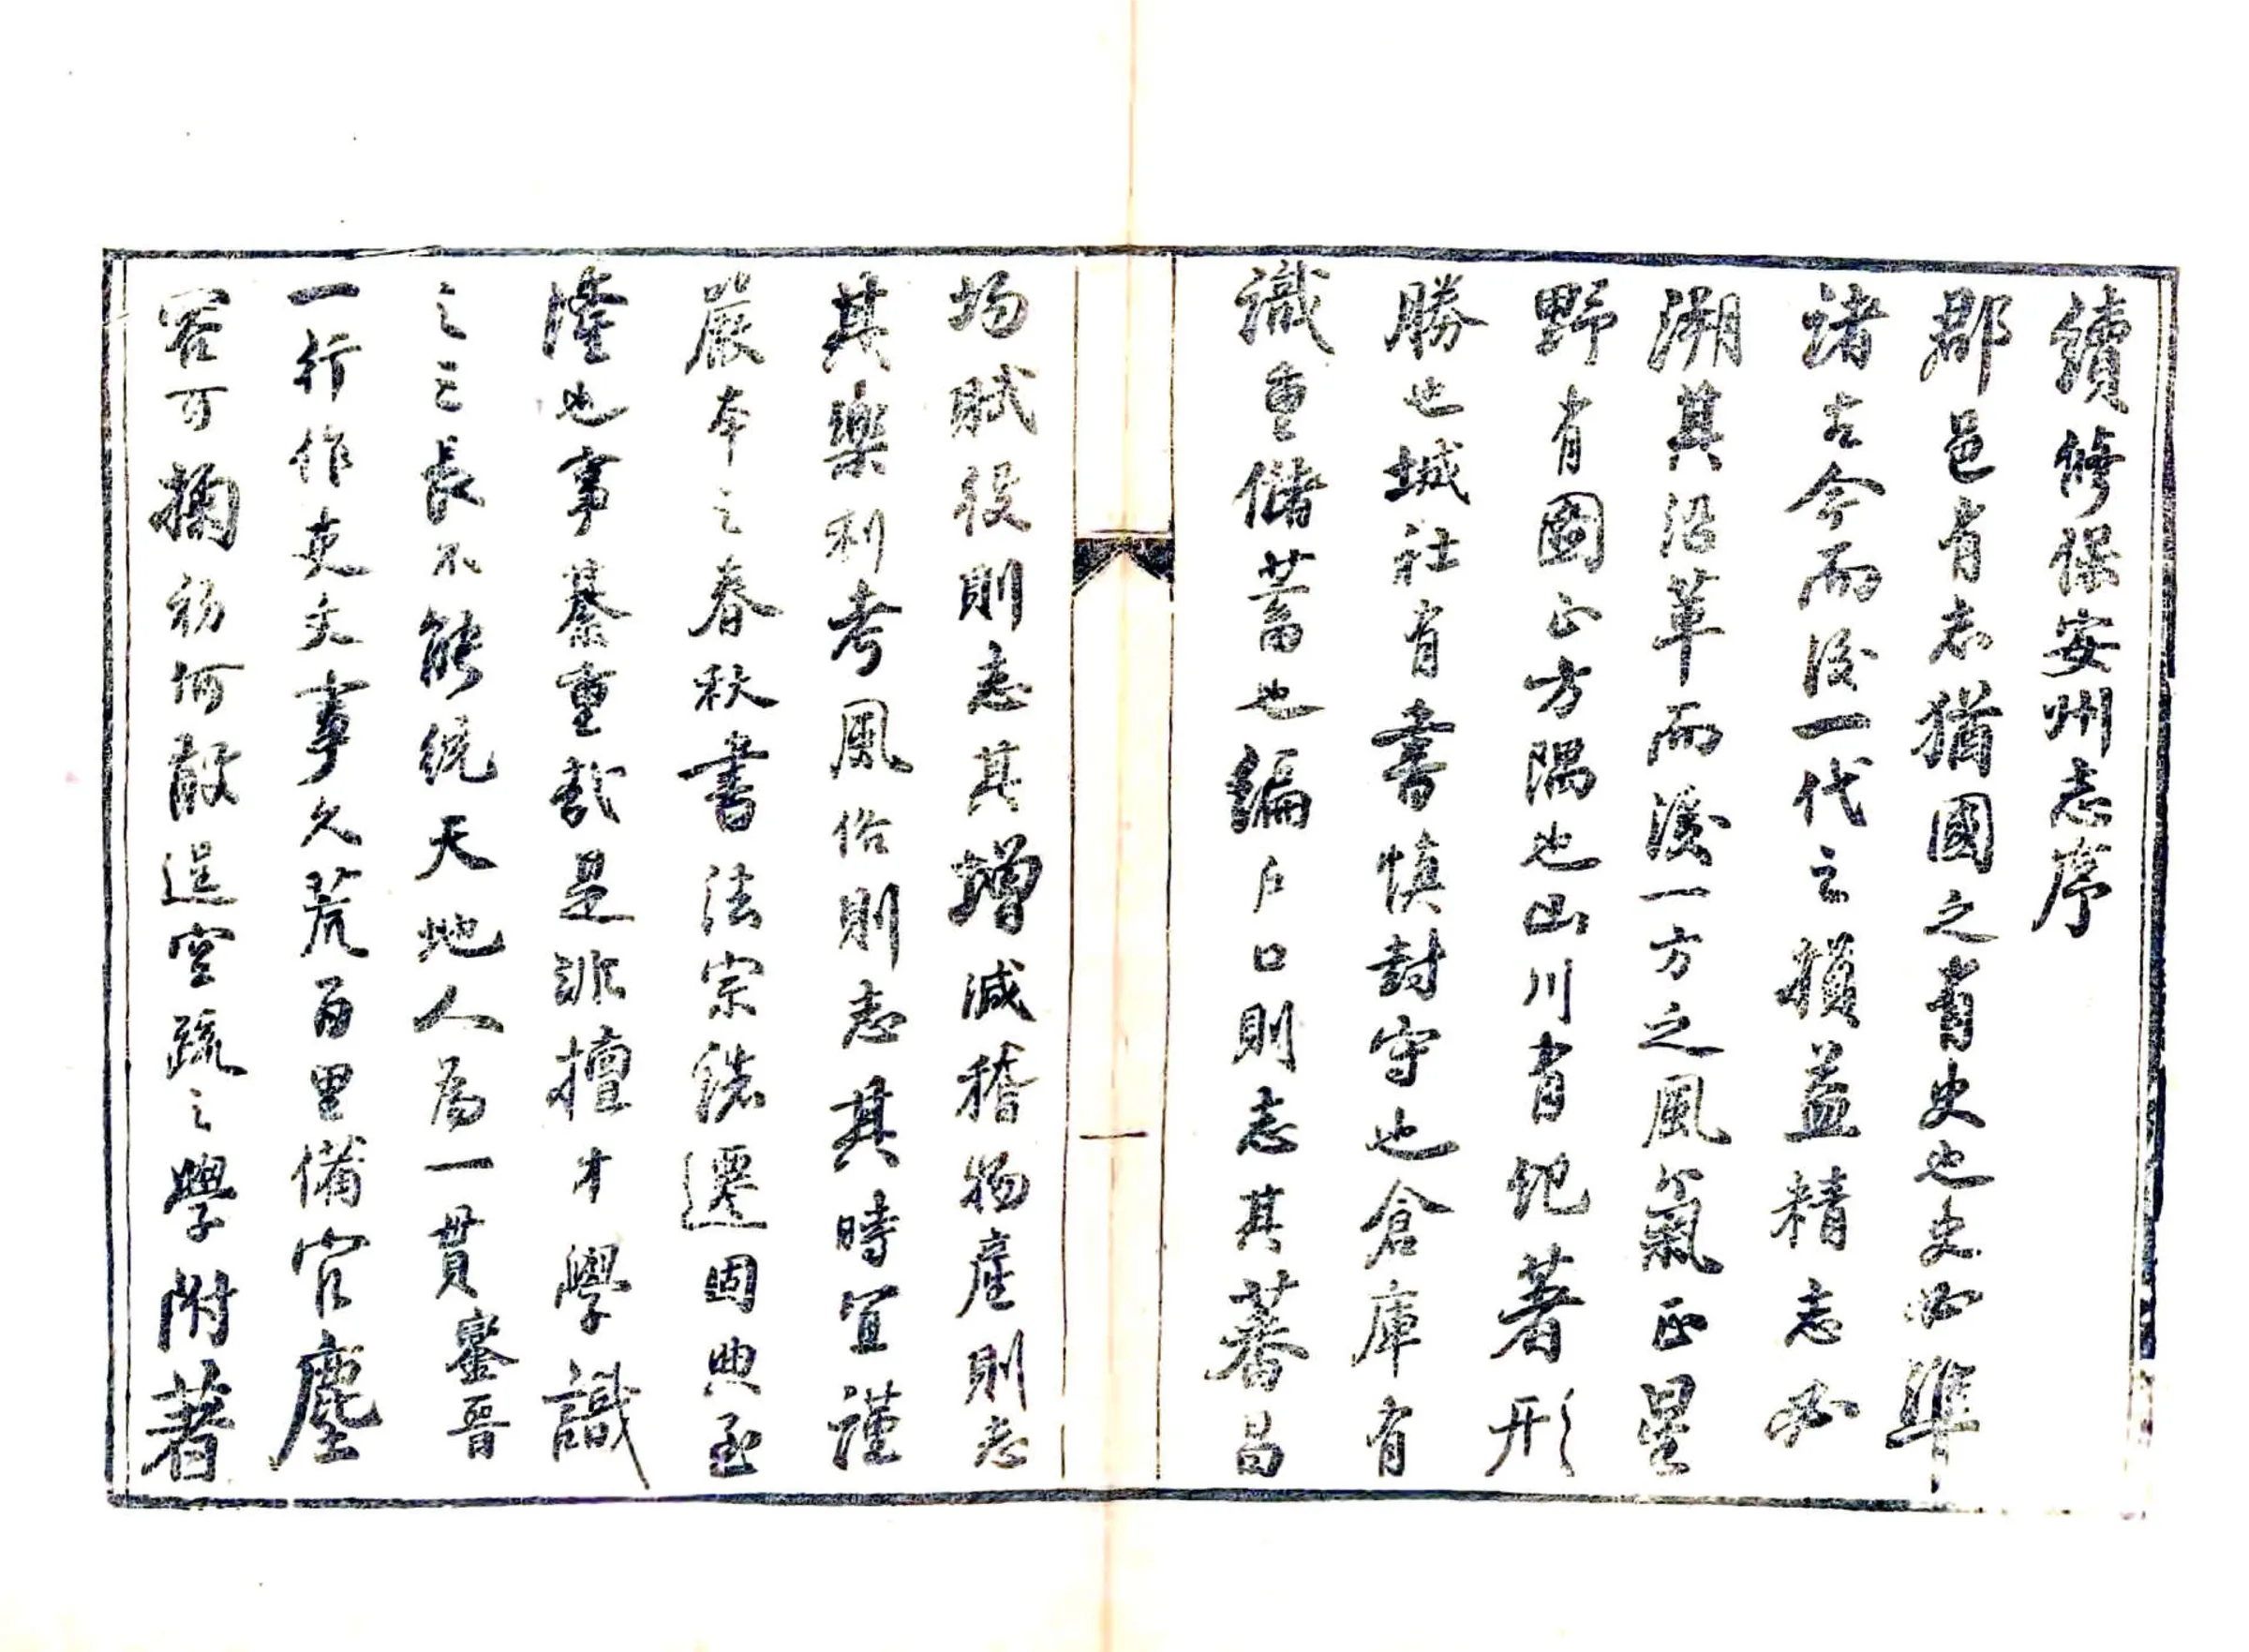 續修保安州志序
郡邑有志猶國之有史也史必準
諸古今而後一代之損益精志必
溯其沿革而後一方之風氣正星
野有圖正方隅也山川有紀著形
勝也城社有書慎封守也倉庫有
識重儲蓄也編戶口則志其蕃昌
均賦役則志其增減稽物產則志
其樂利考風俗則志其時宜謹
嚴本之春秋書法宗諸遷固典至
隆也事綦重哉是非擅才學識
之三長不能統天地人為一貫鑾晉
一行作吏文事久荒百里備官塵
容可掬初何敢逞空疏之學附著